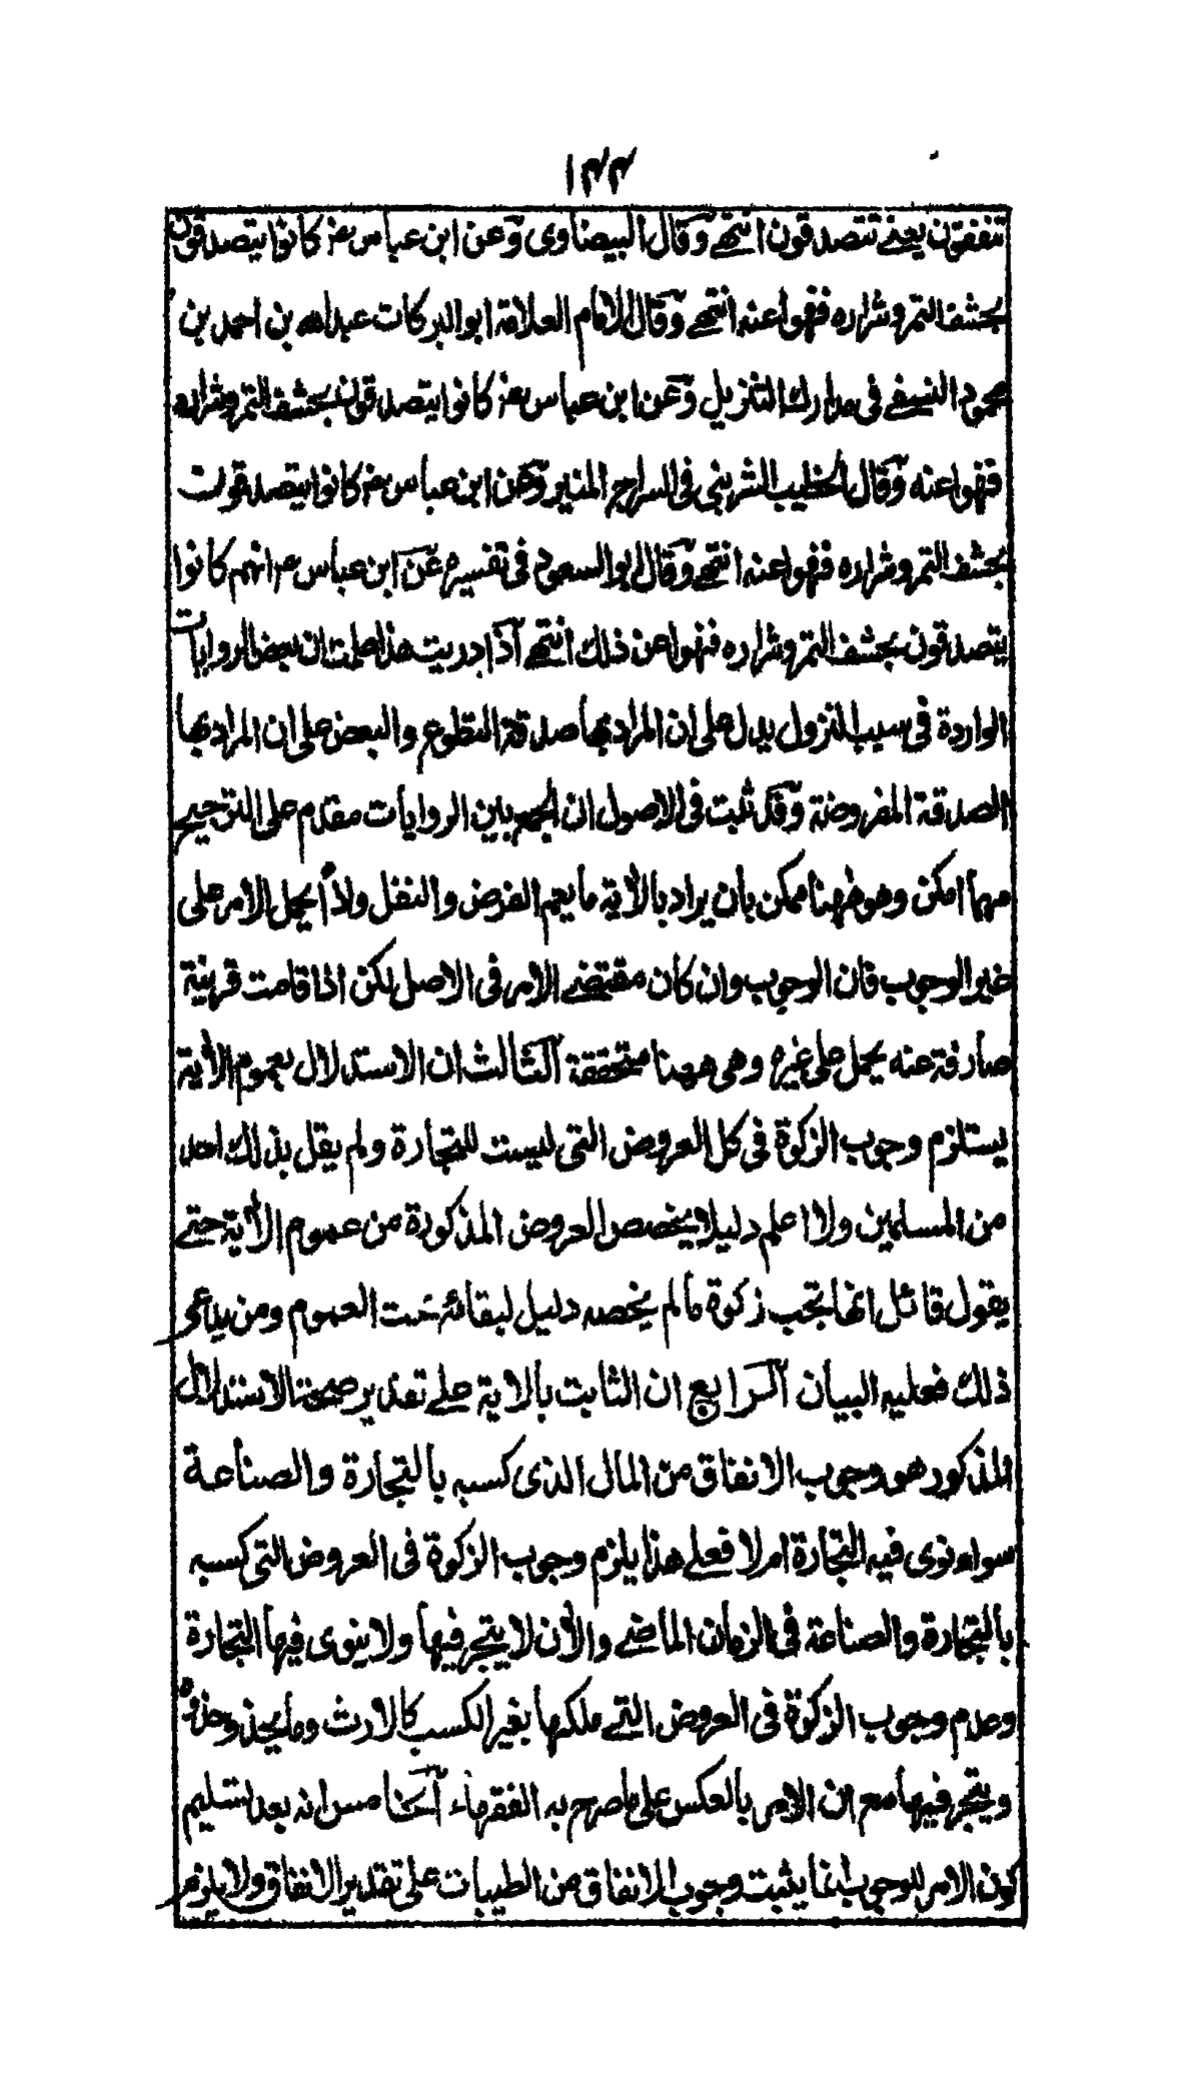 ١٤٤
تنفقون يعنے تتصدقون انتهے وقال البيضاوى وعن ابن عباس رض كانوا يتصدقون
بحشف التمر وشراره فنهوا عنه انتهے وقال الامام العلامة ابو البركات عبد الله بن احمد بن
محمود النسفے فى مدارك التنزيل وعن ابن عباس رض كانوا يتصدقون بحشف التمر وشراره
فنهوا عنه وقال الخطيب الشربينى فى السراج المنير وعن ابن عباس رض كانوا يتصدقون
بحشف التمر وشراره فنهوا عنه انتهے وقال ابو السعود فى تفسيره عن ابن عباس رض انهم كانوا
يتصدقون بحشف التمر وشراره فنهوا عن ذلك انتهے اذا دريت هذا علمت ان بعض الروايات
الواردة فى سبب النزول يدل على ان المراد بها صدقة التطوع والبعض على ان المراد بها
الصدقة المفروضة وقد ثبت فى الاصول ان الجمع بين الروايات مقدم على الترجيح
مهما امكن وهو ههنا ممكن بان يراد بالأية ما يعم الفرض والنفل ولذا يحمل الأمر على
غير الوجوب فان الوجوب وان كان مقتضے الامر فى الاصل لكن اذا قامت قرينة
صارفة عنه يحمل على غيره وهى ههنا متحققة الثالث ان الاستدلال بعموم الأية
يستلزم وجوب الزكوة فى كل العروض التى ليست للتجارة ولم يقل بذلك احد
من المسلمين ولا اعلم دليلا يخصص العروض المذكورة من عموم الأية حتے
يقول قائل انها تجب زكوة مالم يخصه دليل لبقائه تحت العموم ومن يدعى
ذلك فعليه البيان الرابع ان الثابت بالاية علے تقدير صحة الاستدلال
المذكور هو وجوب الانفاق من المال الذى كسبه بالتجارة والصناعة
سواء نوى فيه التجارة ام لا فعلے هذا يلزم وجوب الزكوة فى العروض التى كسبه
بالتجارة والصناعة فى الزمان الماضے والأن لا يتجر فيها ولا ينوى فيها التجارة
وعدم وجوب الزكوة فى العروض التے ملكها بغير الكسب كالارث وما يحذو حذوه
ويتجر فيها مع ان الامر بالعكس على ما صرح به الفقهاء الخامس انه بعد تسليم
كون الامر للوجوب انما يثبت وجوب الانفاق من الطيبات على تقدير الانفاق ولا يلزم